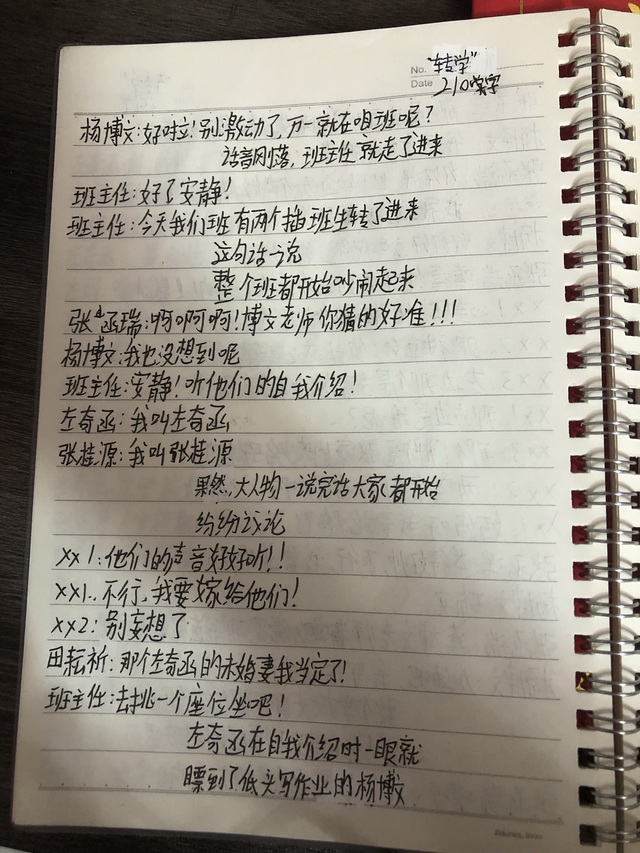 No. "转学"
Date 210常字
杨博文:好啦!别激动了,万一就在咱班呢?
话音刚落,班主任就走了进来
班主任:好了安静!
班主任:今天我们班有两个插班生转了进来
这句话一说
整个班都开始吵闹起来
张函瑞:啊啊啊!博文老师你猜的好准!!!
杨博文:我也没想到呢
班主任:安静!听他们的自我介绍!
左奇函:我叫左奇函
张桂源:我叫张桂源
果然,大人物一说完话大家都开始
纷纷议论
xx1:他们的声音好好听!!
xx1:不行,我要嫁给他们!
xx2:别妄想了
田耘祈:那个左奇函的未婚妻我当定了!
班主任:去挑一个座位坐吧!
左奇函在自我介绍时一眼就
瞟到了低头写作业的杨博文